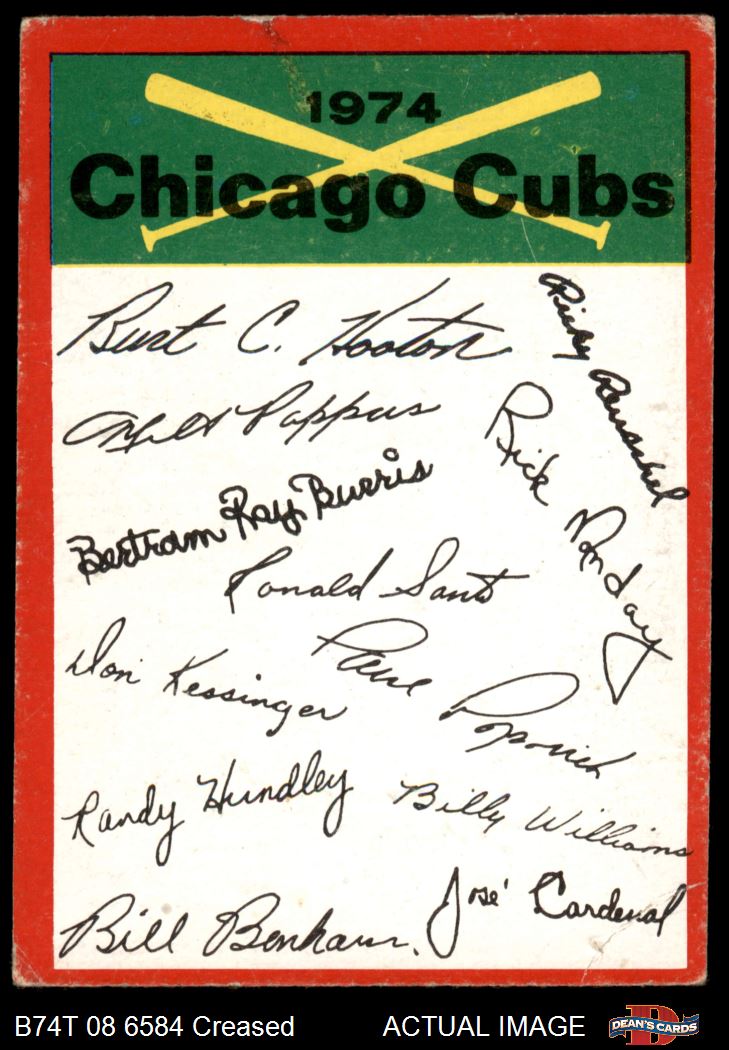 1974
Chicago Cubs
Burt C. Hooton
Ricky Reuschel
Milt Pappas
Rick Monday
Bertram Ray Burris
Ronald Santo
Don Kessinger
Paul Popovich
Randy Hundley
Billy Williams
José Cardenal
Bill Bonham.
B74T 08 6584 Creased
ACTUAL IMAGE
DEAN'S CARDS